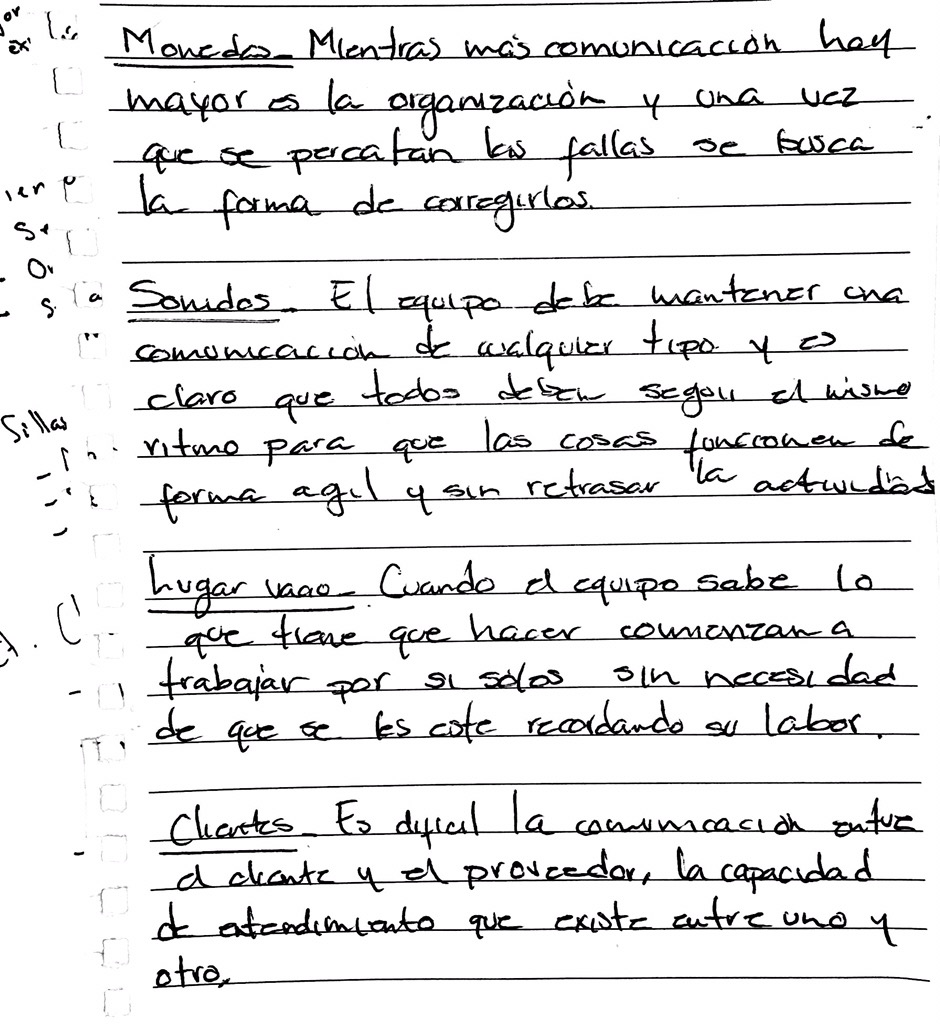 Monedas- Mientras más comunicación hay
mayor es la organización y una vez
que se percatan las fallas se busca
la forma de corregirlos.
Sonidos- El equipo debe mantener una
comunicación de cualquier tipo y es
claro que todos deben seguir el mismo
ritmo para que las cosas funcionen de
forma agil y sin retrasar la actividad
Lugar vacio- Cuando el equipo sabe lo
que tiene que hacer comienzan a
trabajar por si solos sin necesidad
de que se les este recordando su labor.
Clientes- Es dificil la comunicación entre
el cliente y el proveedor, la capacidad
de entendimiento que existe entre uno y
otro.
Sillas